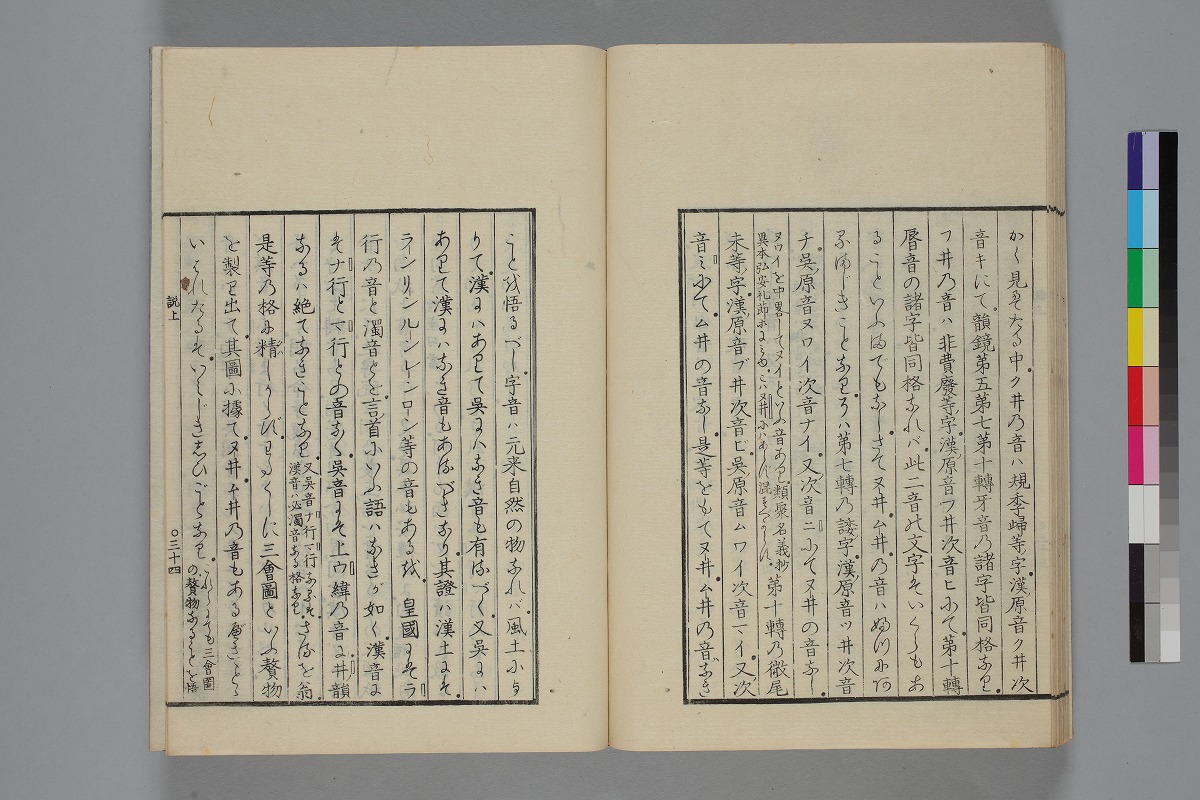 かく見えたる中クヰ乃音ハ規季歸等字漢原音クヰ次
音キにて韻鏡第五第七第十轉牙音乃諸字皆同格なり
フヰ乃音ハ非費廢等字漢原音フヰ次音ヒにて第十轉
脣音の諸字皆同格なれバ此二音の文字そいくらもあ
ることいふまでもなしさてヌヰムヰ乃音ハ
るまじきことなり ハ第七轉乃諉字漢原音ツヰ次音
チ呉原音ヌワイ次音ナイ又次音ニにてヌヰの音なし
ヌワイを中畧してヌイといふ音あり類聚名義抄
異本弘安礼節 にハあらバ混 べからバ
第十轉乃微尾
未等字漢原音ブヰ次音ビ呉原音ムワイ次音マイ又次
音ミにてムヰの音なし是等をもてヌヰムヰ乃音なき
こと殘悟るべし字音ハ元来自然の物なれバ風土によ
りて漢にハありて呉にハなき音も有るべく又呉にハ
ありて漢にハなき音もあるべきなり其證ハ漢土にそ
ランリンルーンレンローン等の音もあるを 皇國にそラ
行乃音と濁音とを言首にいふ語ハなきが如く漢音に
そナ行とマ行との音なく呉音にそ上ウ緯乃音にヰ韻
なるハ絶てなきことなり
又呉音ナ行マ行なるそ
漢音ハ必濁音なる格なり
さるを翁
是等乃格に精しからびりにわくしに三會圖といふ贅物
を製り出て其圖に據てヌヰムヰ乃音もあるべきとら
いはれたるそいみじきしひごとなり
これらにても三會圖
の贅物なることを悟
説上
○三十四